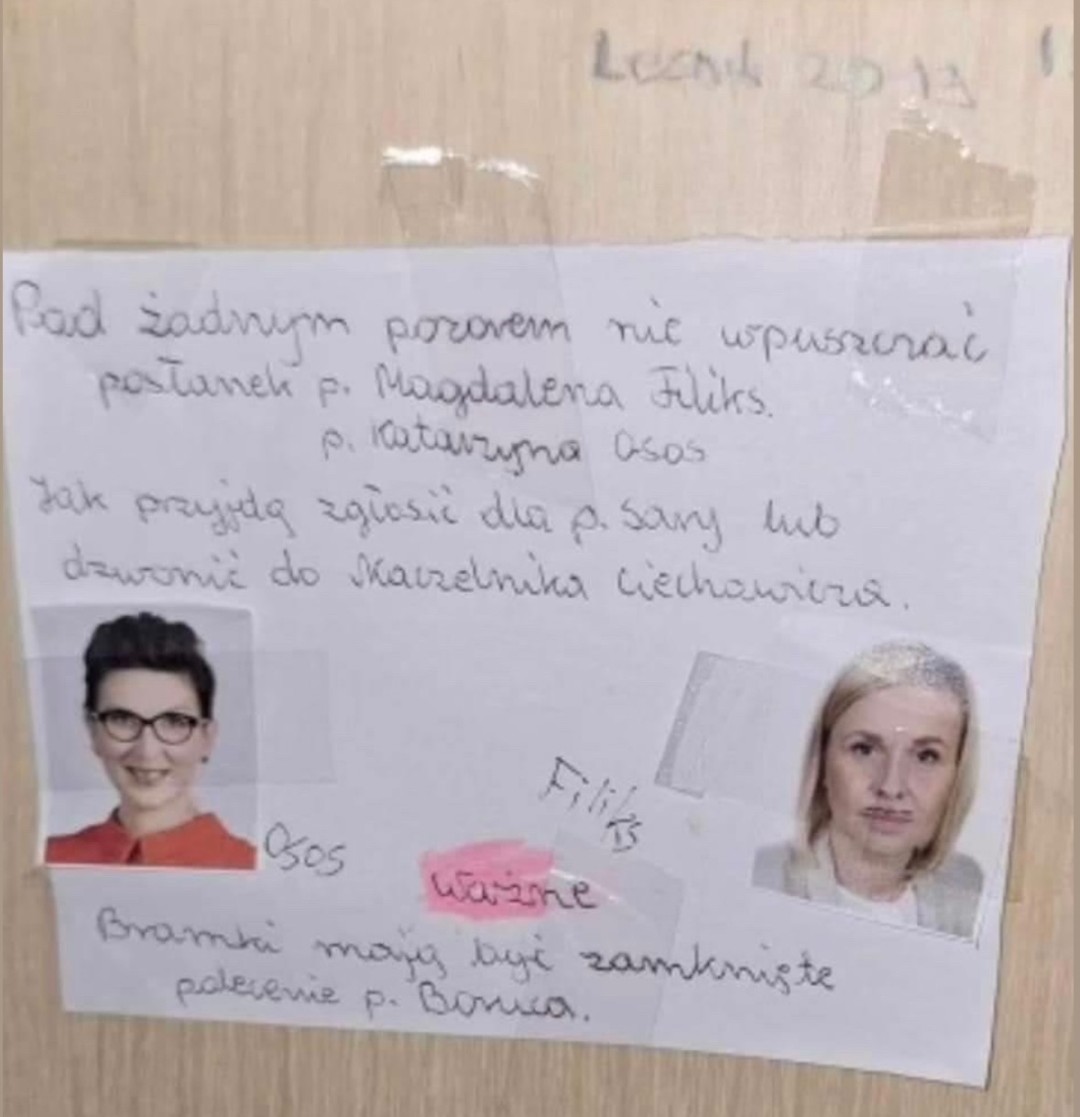 2013
Pod żadnym pozorem nie wpuszczać
posłanek p. Magdalena Filiks.
p. Katarzyna Osos
Jak przyjdą zgłosić dla p. Sary lub
dzwonić do Naczelnika Ciechawicza.
Filiks
Osos
Ważne
Bramki mają być zamknięte
polecenie p.